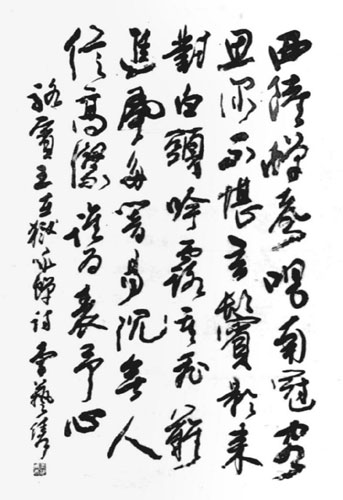 西陸蟬聲唱南冠客
思深不堪玄鬢影來
對白頭吟露重飛難
進風多響易沈無人
信高潔誰为表予心
駱賓王在獄詠蟬詩